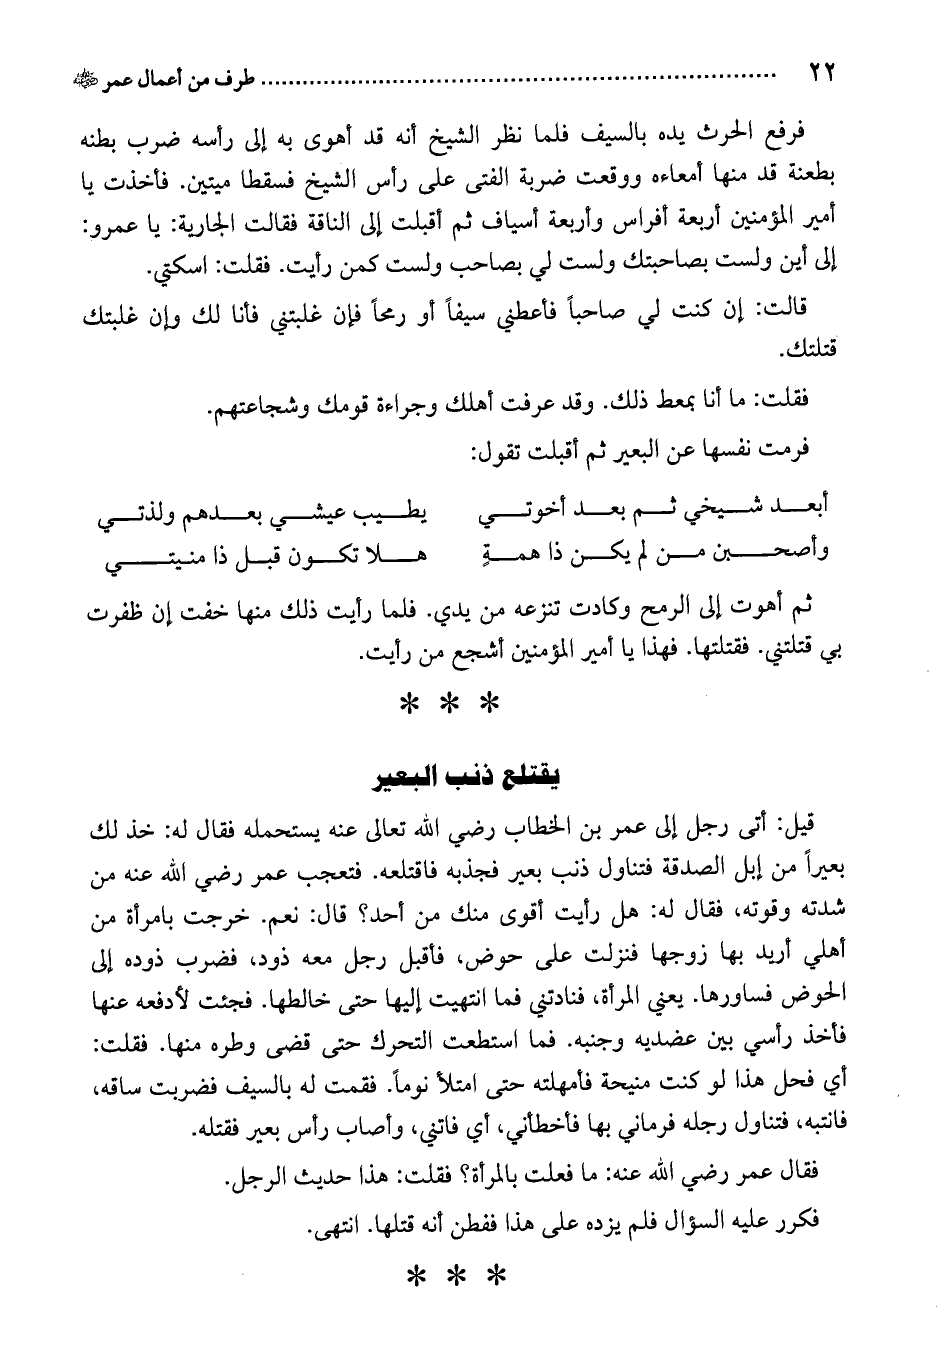 ٢٢ ........................................................................... طرف من أعمال عمر ﷺ
فرفع الحرث يده بالسيف فلما نظر الشيخ أنه قد أهوى به إلى رأسه ضرب بطنه
بطعنة قد منها أمعاءه ووقعت ضربة الفتى على رأس الشيخ فسقطا ميتين. فأخذت يا
أمير المؤمنين أربعة أفراس وأربعة أسياف ثم أقبلت إلى الناقة فقالت الجارية: يا عمرو:
إلى أين ولست بصاحبتك ولست لي بصاحب ولست كمن رأيت. فقلت: اسكتي.
قالت: إن كنت لي صاحباً فأعطني سيفاً أو رمحاً فإن غلبتني فأنا لك وإن غلبتك
قتلتك.
فقلت: ما أنا بمعط ذلك. وقد عرفت أهلك وجراءة قومك وشجاعتهم.
فرمت نفسها عن البعير ثم أقبلت تقول:
أبعـد شـيخي ثـم بعـد أخوتـي يطـيب عيشـي بعـدهم ولذتـي
وأصحـبن مـن لم يكـن ذا همـةٍ هـلا تكـون قبـل ذا منيتـي
ثم أهوت إلى الرمح وكادت تنزعه من يدي. فلما رأيت ذلك منها خفت إن ظفرت
بي قتلتني. فقتلتها. فهذا يا أمير المؤمنين أشجع من رأيت.
* * *
يقتلع ذنب البعير
قيل: أتى رجل إلى عمر بن الخطاب رضي الله تعالى عنه يستحمله فقال له: خذ لك
بعيراً من إبل الصدقة فتناول ذنب بعير فجذبه فاقتلعه. فتعجب عمر رضي الله عنه من
شدته وقوته، فقال له: هل رأيت أقوى منك من أحد؟ قال: نعم. خرجت بامرأة من
أهلي أريد بها زوجها فنزلت على حوض، فأقبل رجل معه ذود، فضرب ذوده إلى
الحوض فساورها. يعني المرأة، فنادتني فما انتهيت إليها حتى خالطها. فجئت لأدفعه عنها
فأخذ رأسي بين عضديه وجنبه. فما استطعت التحرك حتى قضى وطره منها. فقلت:
أي فحل هذا لو كنت منيحة فأمهلته حتى امتلأ نوماً. فقمت له بالسيف فضربت ساقه،
فانتبه، فتناول رجله فرماني بها فأخطأني، أي فاتني، وأصاب رأس بعير فقتله.
فقال عمر رضي الله عنه: ما فعلت بالمرأة؟ فقلت: هذا حديث الرجل.
فكرر عليه السؤال فلم يزده على هذا ففطن أنه قتلها. انتهى.
* * *